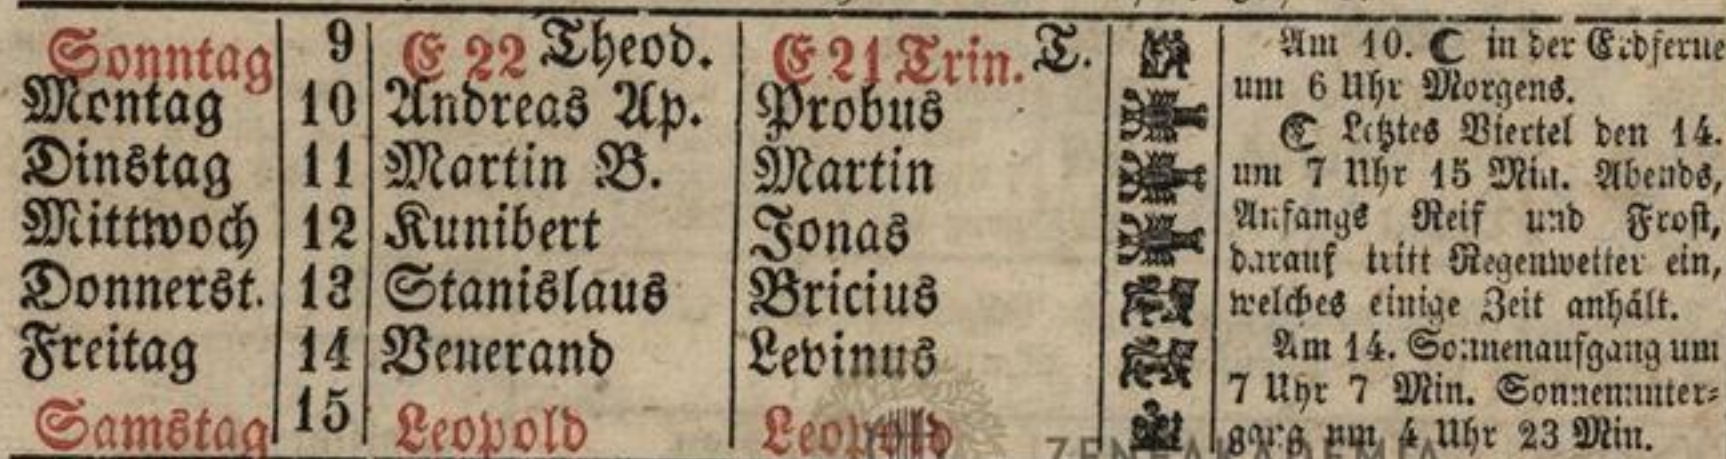 Sonntag 9 E 22 Theod. E 21 Trin. T.
Montag 10 Andreas Ap. Probus
Dinstag 11 Martin B. Martin
Mittwoch 12 Kunibert Jonas
Donnerst. 13 Stanislaus Bricius
Freitag 14 Venerand Levinus
Samstag 15 Leopold Leopold
Am 10. ☾ in der Erdferne
um 6 Uhr Morgens.
☾ Letztes Viertel den 14.
um 7 Uhr 15 Min. Abends,
Anfangs Reif und Frost,
darauf tritt Regenwetter ein,
welches einige Zeit anhält.
Am 14. Sonnenaufgang um
7 Uhr 7 Min. Sonnenunter-
gang um 4 Uhr 23 Min.
ZENEAKADÉMIA